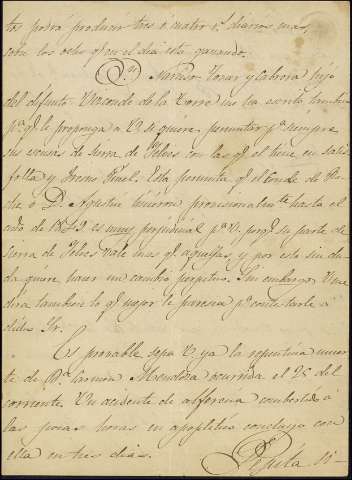 tos podrá producir tres ó cuatro rs. diarios mas,
sobre los ocho qe. en el dia esta ganando.
Dn. Narciso Tovar y Cabrera hijo
del difunto Vizconde de la Torre me ha escrito tambien
pa. qe. le proponga a V. si quiere permutar pa. siempre
sus de sierra de Yelves con las qe. el tiene en
y Esta permuta qe. el Conde de
ó D. Agustin hicieron provisionalente. hasta el
año de 1859 es muy perjudicial pa. V. porqe. su parte de
sierra de Yelves vale mas qe. aquellas, y por esto sin du-
da quiere hacer un cambio perpetuo. Sin embargo, V me
dira tambien lo qe. mejor le paresca pa. contestarle á
dicho Sr.
Es provable sepa V. ya la repentina muer-
te de Da. Carmen Mendoza ocurrida el 25 del
corriente. Un acsidente de alferecia combertido á
las pocas horas en apoplético concluyo con
ella en tres dias.
Pepita si-